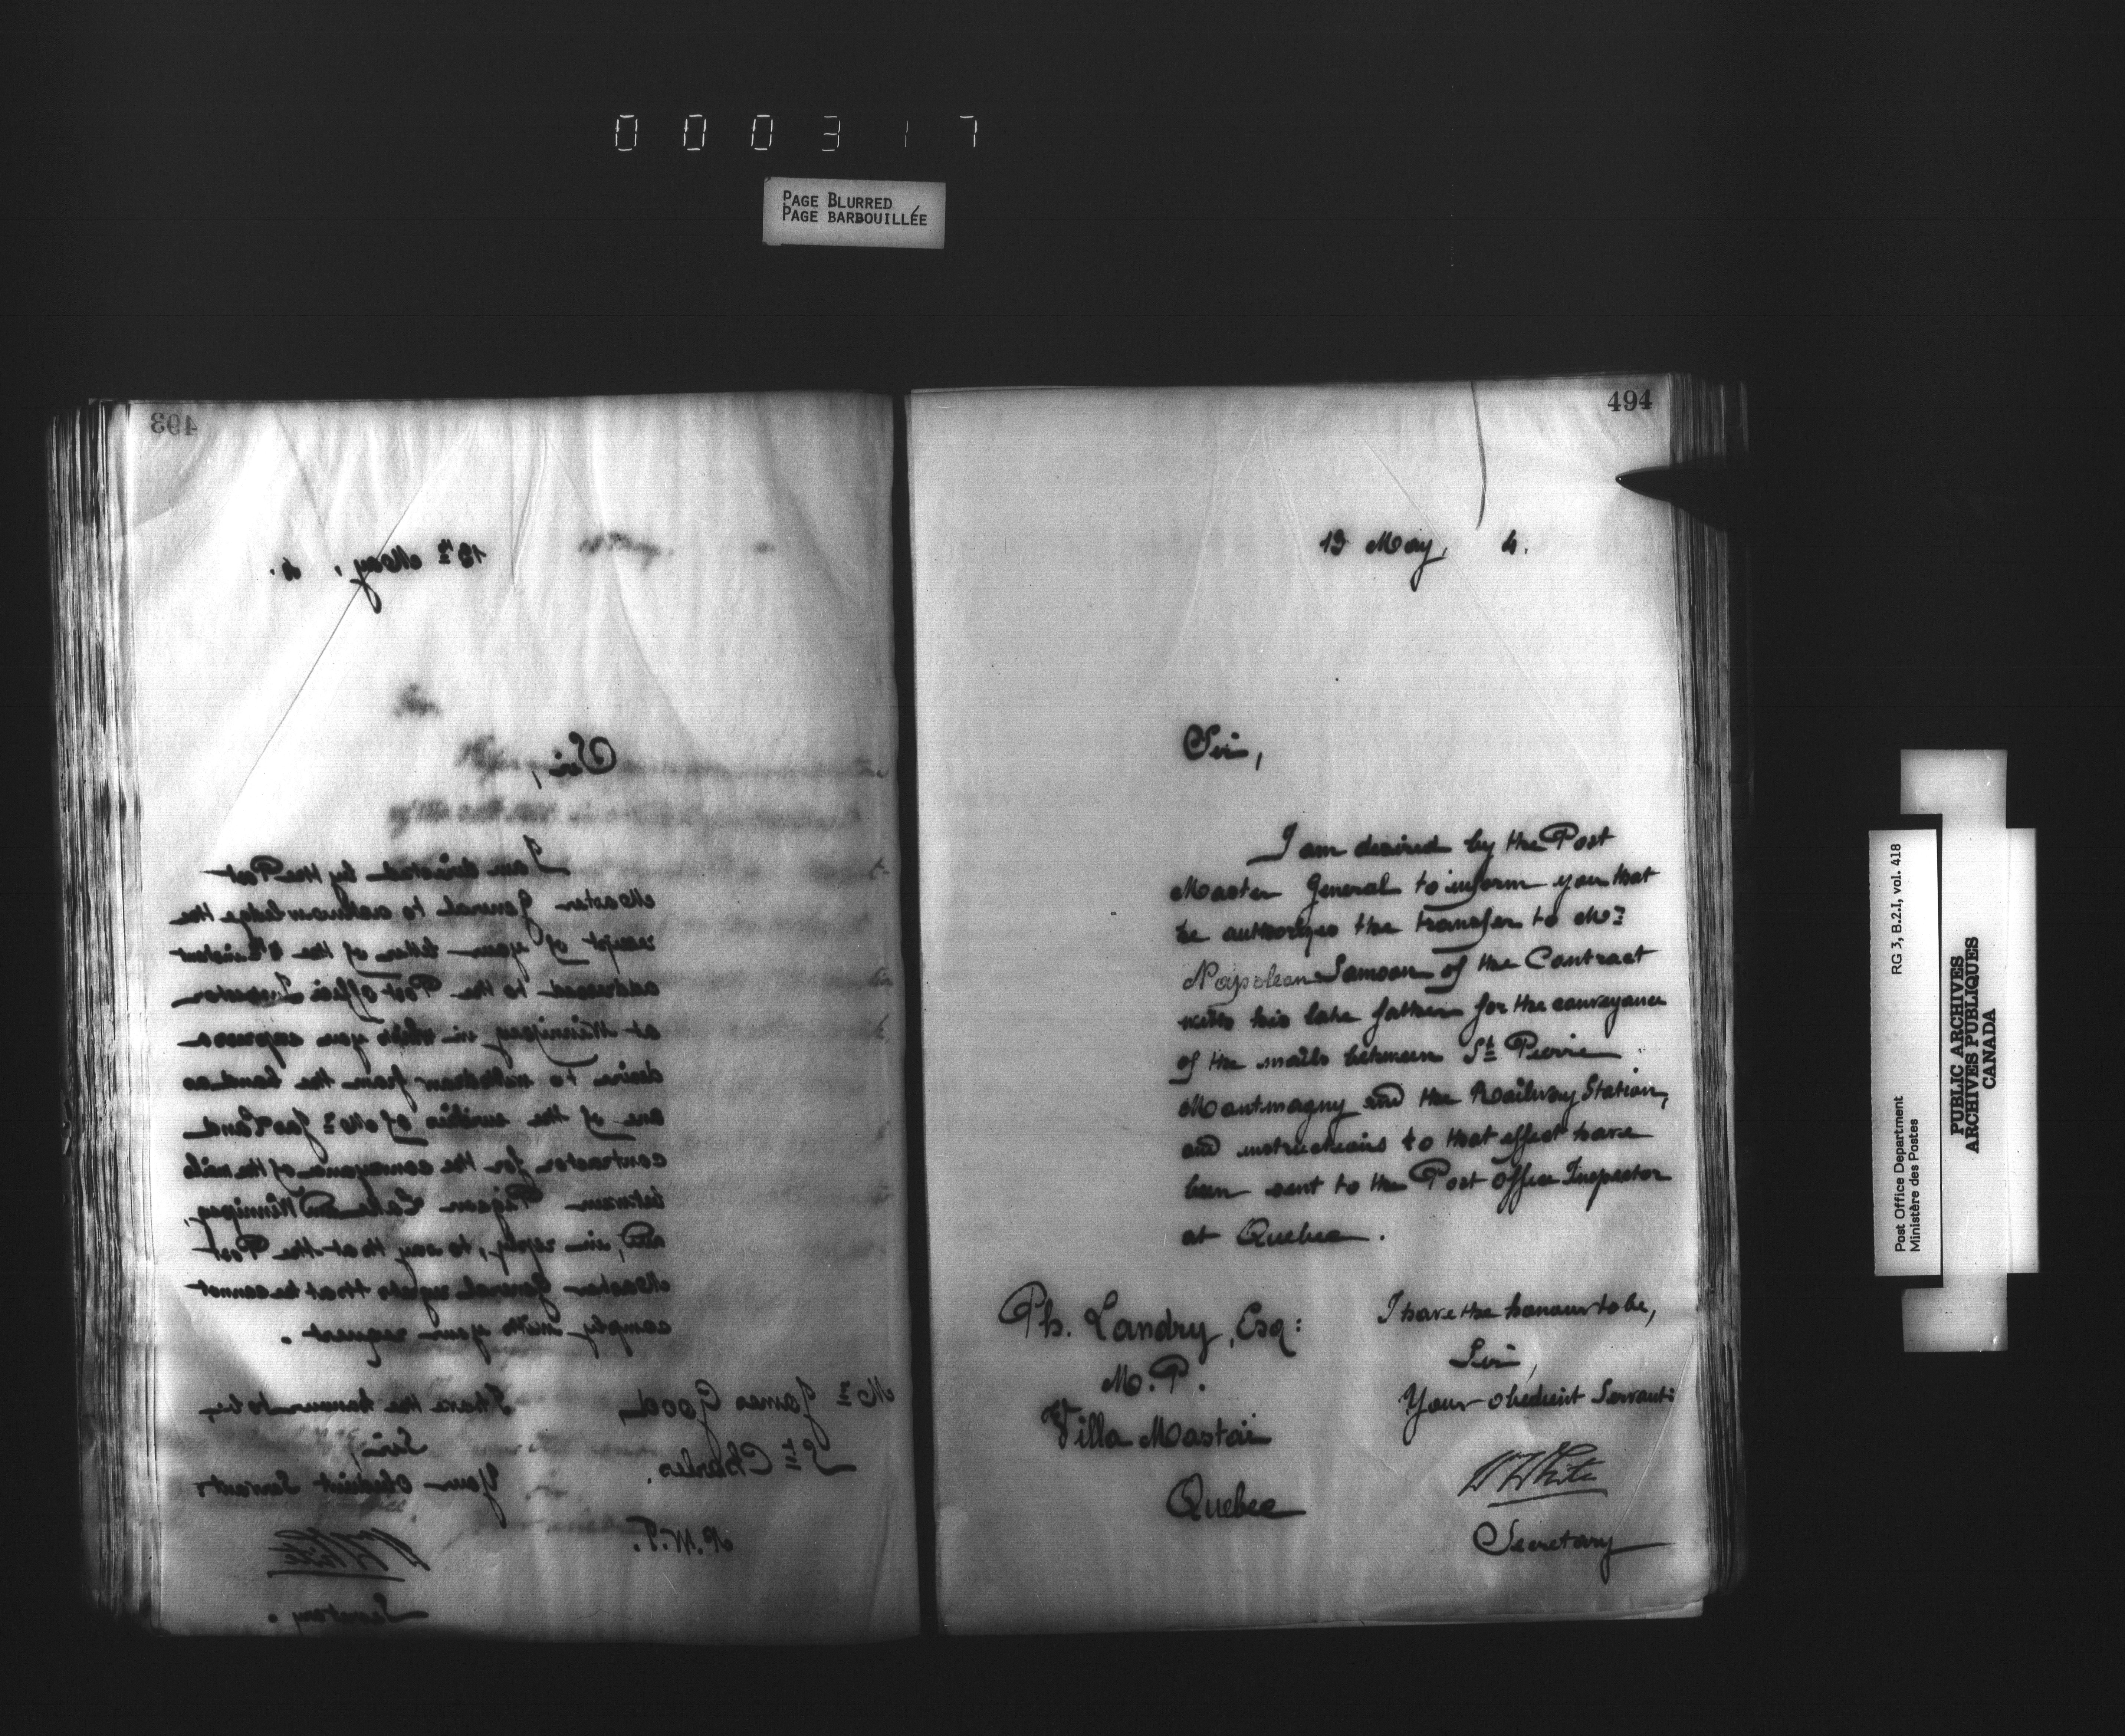 000317
PAGE BLURRED
PAGE BARBOUILLÉE
493
19th May, 4.
Sir,
I am directed by the Post
Master General to acknowledge the
receipt of your letter of the instant
addressed to the Post Office Inspector
at Winnipeg in which you express a
desire to withdraw from the bond as
one of the sureties of Mr Jas
contractor for the conveyance of the mails
between Pigeon Lake and Winnipeg,
and, in reply, to say that the Post
Master General regrets that he cannot
comply with your request.
I have the honour to be,
Sir,
Your obedient Servant:
White
Secretary.
Mr James Good,
St Charles.
N.W.T.
494
19 May, 4.
Sir,
I am desired by the Post
Master General to inform you that
he authorizes the transfer to Mr
Napoleon Samson of the Contract
with his late father for the conveyance
of the mails between St Pierre
Montmagny and the Railway Station,
and instructions to that effect have
been sent to the Post Office Inspector
at Quebec.
I have the honour to be,
Sir,
Your obedient Servant:
W White
Secretary
Ph. Landry, Esq:
M.P.
Villa Mastai
Quebec
Post Office Department
Ministère des Postes
RG 3, B.2.I, vol. 418
PUBLIC ARCHIVES
ARCHIVES PUBLIQUES
CANADA